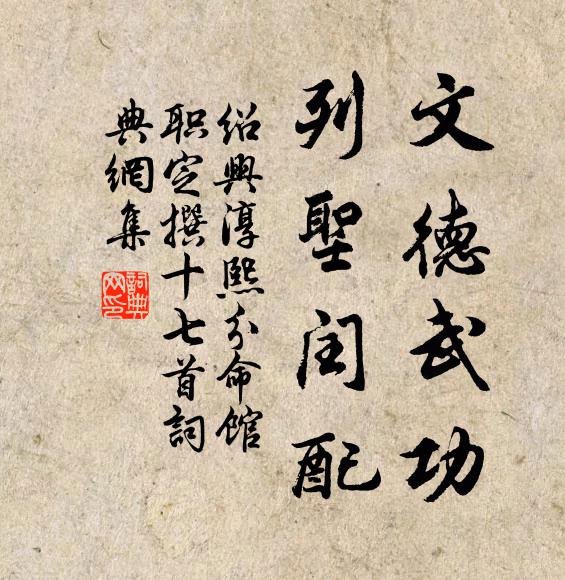 文德武功
列聖閏配
紹興淳熙分命館
职定撰十七首詞
典網集
詞典
网印